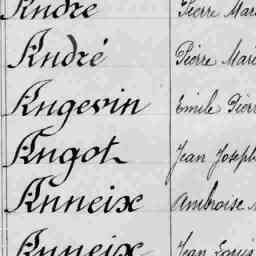 André Pierre Mari
André Pierre Mari
Angevin Emile Pierr
Angot Jean Joseph
Anneix Ambroise
Anneix Jean Louis